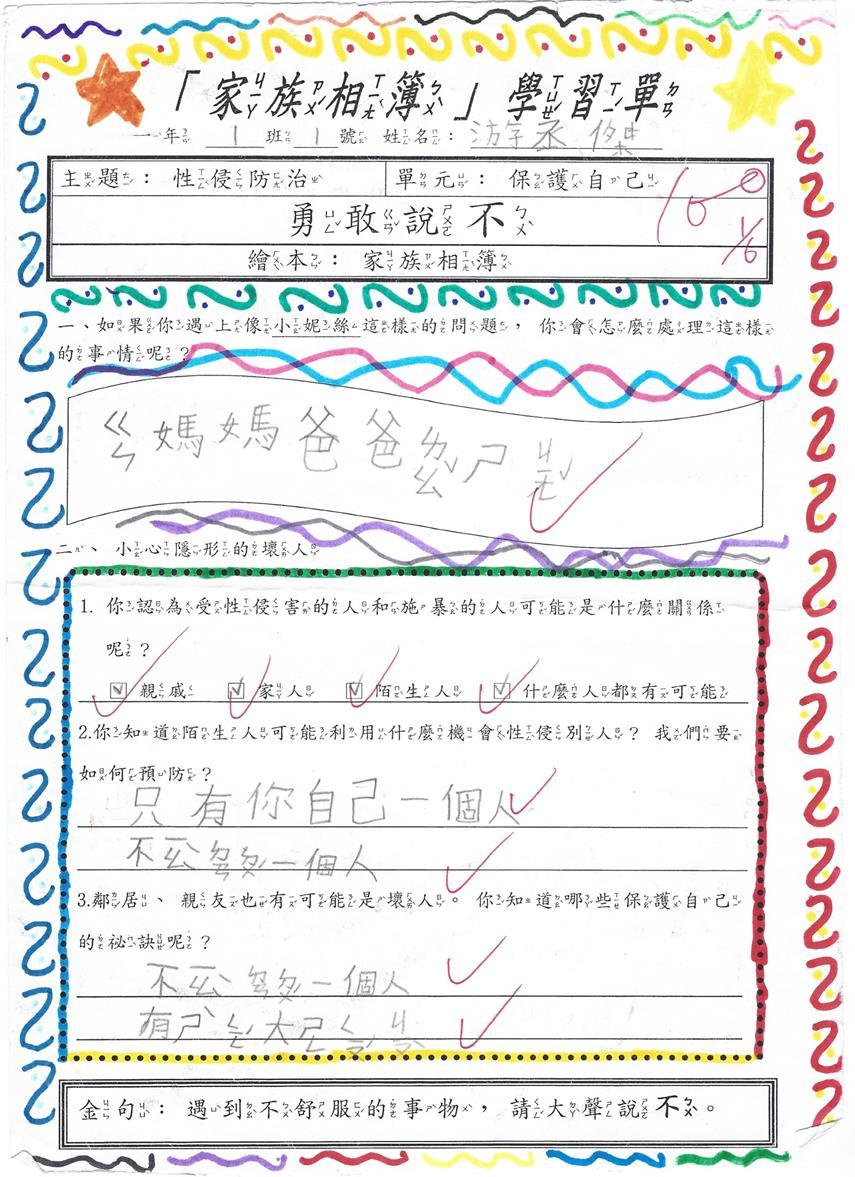 「家族相簿」學習單
一年 1 班 1 號 姓名：游丞傑
主題：性侵防治 單元：保護自己
勇敢說不
100
1/6
繪本：家族相簿
一、如果你遇上像小妮絲這樣的問題，你會怎麼處理這樣
的事情呢？
ㄍㄣ媽媽爸爸ㄉㄠˇㄕㄐㄤˇ
二、小心隱形的壞人
1. 你認為受性侵害的人和施暴的人可能是什麼關係
呢？
☑親戚 ☑家人 ☑陌生人 ☑什麼人都有可能
2.你知道陌生人可能利用什麼機會性侵別人？我們要
如何預防？
只有你自己一個人
不ㄧㄠ 一個人
3.鄰居、親友也有可能是壞人。你知道哪些保護自己
的祕訣呢？
不ㄧㄠ 一個人
有ㄕˋ 大
金句：遇到不舒服的事物，請大聲說不。